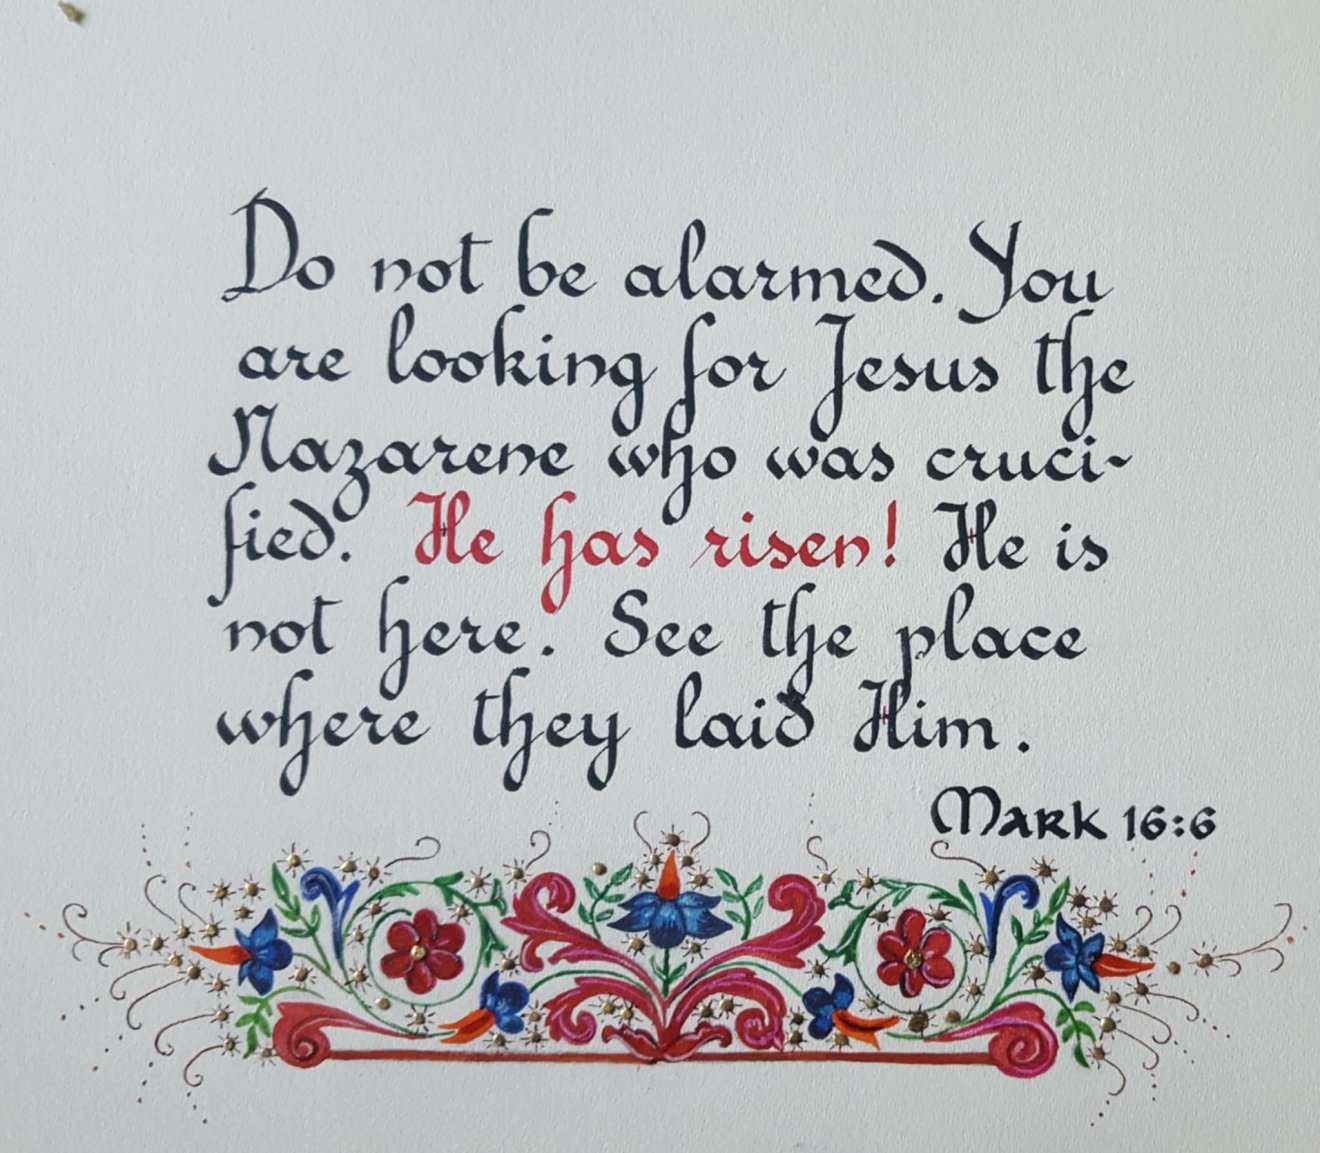 Do not be alarmed. You
are looking for Jesus the
Nazarene who was cruci-
fied. He has risen! He is
not here. See the place
where they laid Him.
Mark 16:6